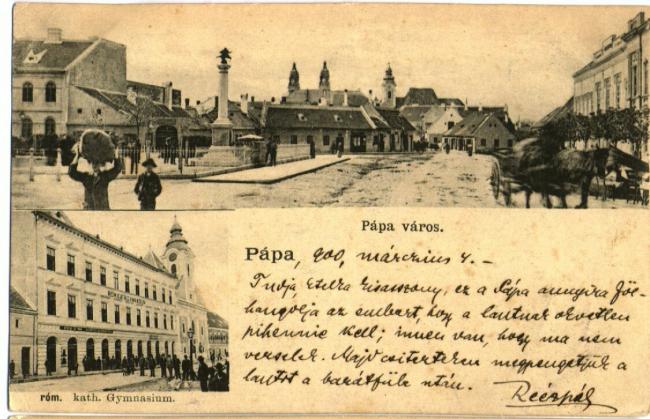 Pápa város.
Pápa, 900, március 4. -
Tudja Etelka kisasszony, ez a Pápa annyira föl-
hangolja az embert, hogy a lantnak okvetlen
pihennie kell; innen van, hogy ma nem
verselek. Majd csütörtökön megpengetjük a
lantot a barátfüle után.
róm. kath. Gymnasium.